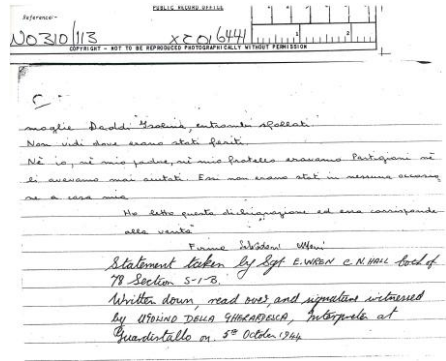 PUBLIC RECORD OFFICE
Reference:-
WO310/113
COPYRIGHT - NOT TO BE REPRODUCED PHOTOGRAPHICALLY WITHOUT PERMISSION
moglie Daddi Isolina, entrambi sfollati.
Non vidi dove erano stati feriti.
Nè io, nè mio padre, nè mio fratello eravamo Partigiani nè
li avevamo mai aiutati. Essi non erano stati in nessuna
a casa mia
Ho letto questa dichiarazione ed essa corrisponde
alla verità
Firma
Statement taken by Sgt E. WREN C.N. HALL both of
78 Section S-I-B.
Written down, read over, and signature witnessed
by UGOLINO DELLA GHERARDESCA, Interpreter at
Guardistallo on 5th October 1944